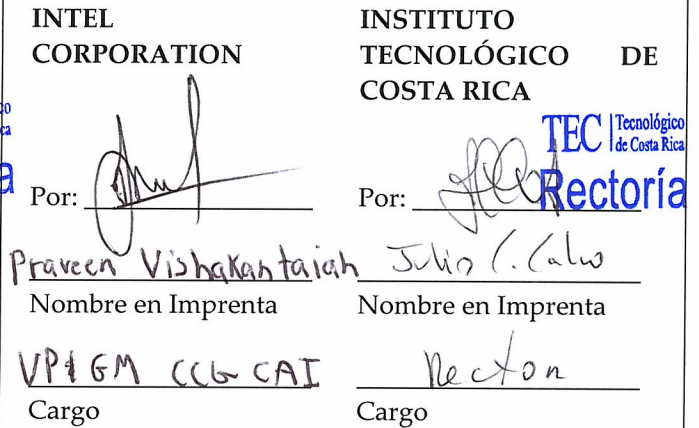 INTEL
CORPORATION
Por:
Praveen Vishakantaiah
Nombre en Imprenta
VP & GM CCG CAI
Cargo
INSTITUTO
TECNOLÓGICO DE
COSTA RICA
TEC | Tecnológico
de Costa Rica
Rectoría
Por:
Julio C. Calvo
Nombre en Imprenta
Rector
Cargo